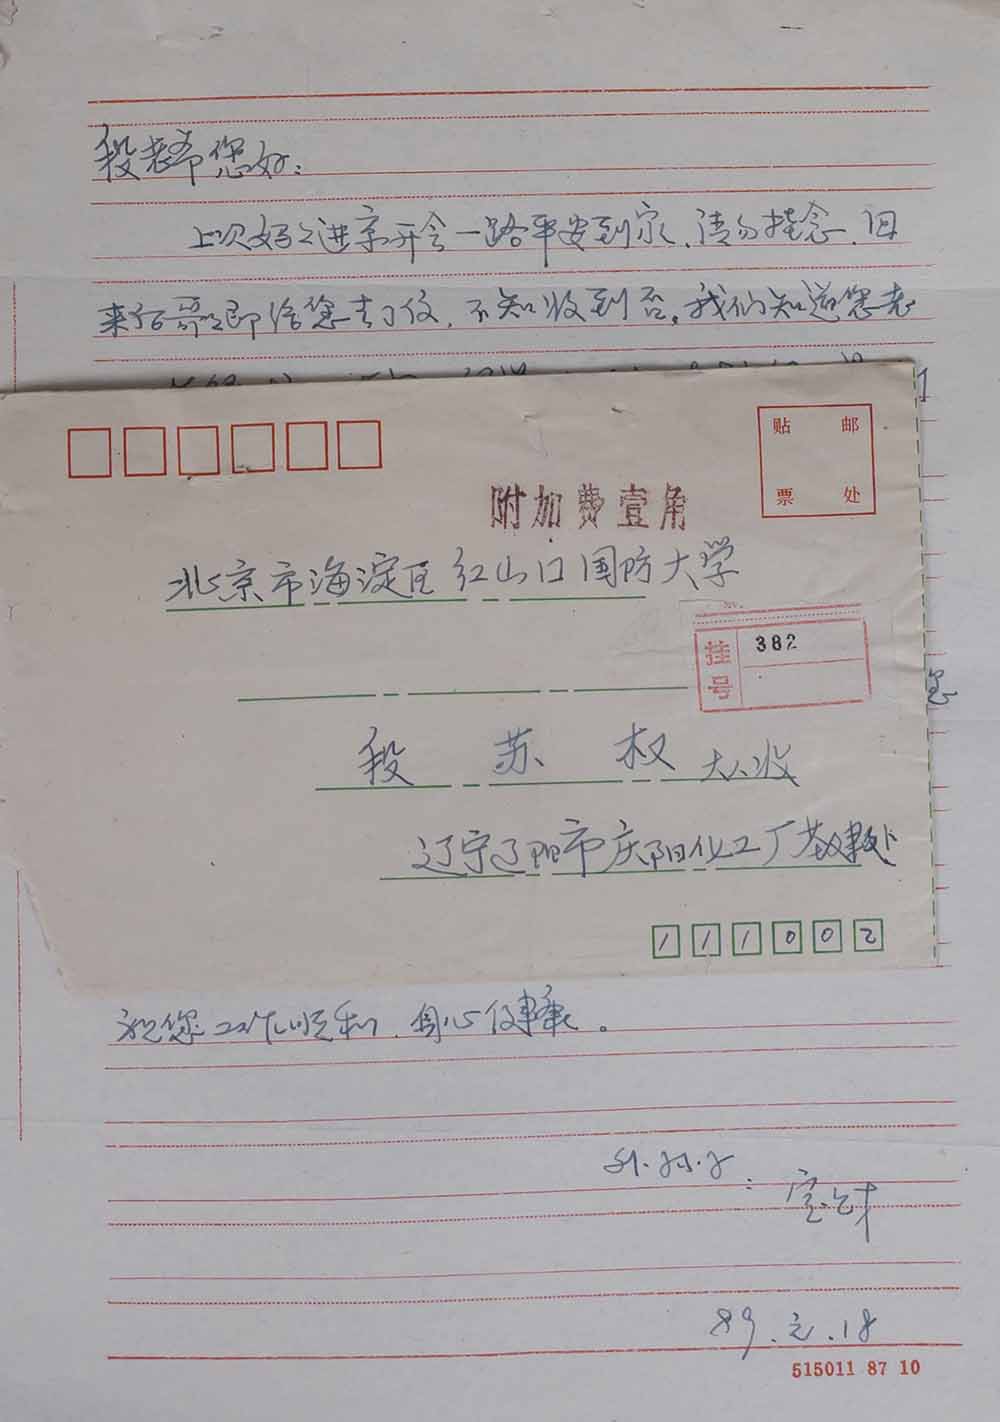 段老师您好：
上次妈妈进京开会一路平安到家，请勿挂念，回
来后哥哥即给您去了信，不知收到否。我们知道您老
贴 邮
票 处
附加费壹角
北京市海淀区红山口国防大学
挂号 382
段 苏 权 大人收
辽宁辽阳市庆阳化工厂基建处
111002
祝您工作顺利，身心健康。
外孙子：
89.元.18
515011 87 10